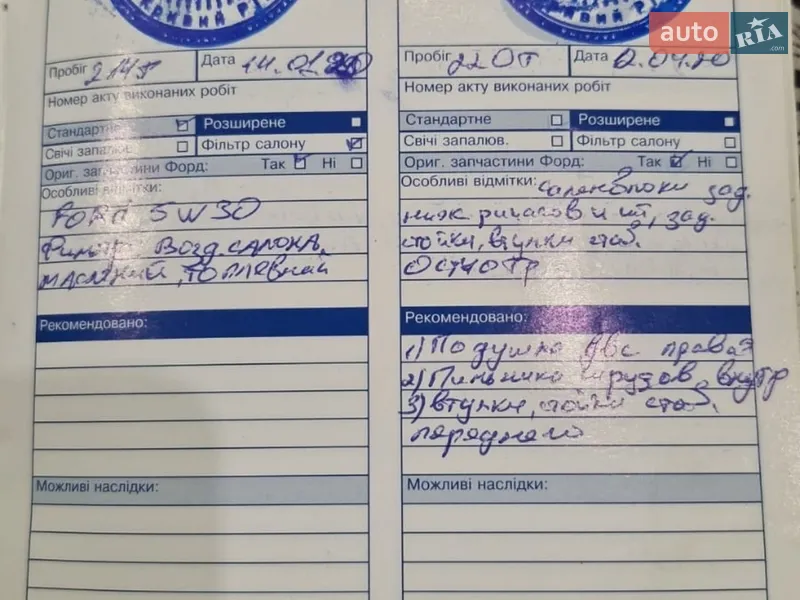 КРИВИЙ РІ
КРИВИЙ РІ
auto RIA .com
Пробіг 214т Дата 14.01.20
Номер акту виконаних робіт
Стандартне Розширене
Свічі запалюв. Фільтр салону
Ориг. запчастини Форд: Так Ні
Особливі відмітки:
FORD 5W30
Фильтр Возд. салона,
масляний, топлевний
Рекомендовано:
Можливі наслідки:
Пробіг 220т Дата 2.04.20
Номер акту виконаних робіт
Стандартне Розширене
Свічі запалюв. Фільтр салону
Ориг. запчастини Форд: Так Ні
Особливі відмітки: саленблоки зад.
ниж рычагов и зад.
стойки, втулки стаб.
осмотр
Рекомендовано:
1) Подушка ДВС правая
2) Пыльники внутр
3) втулки, стойки стаб.
переднего
Можливі наслідки: